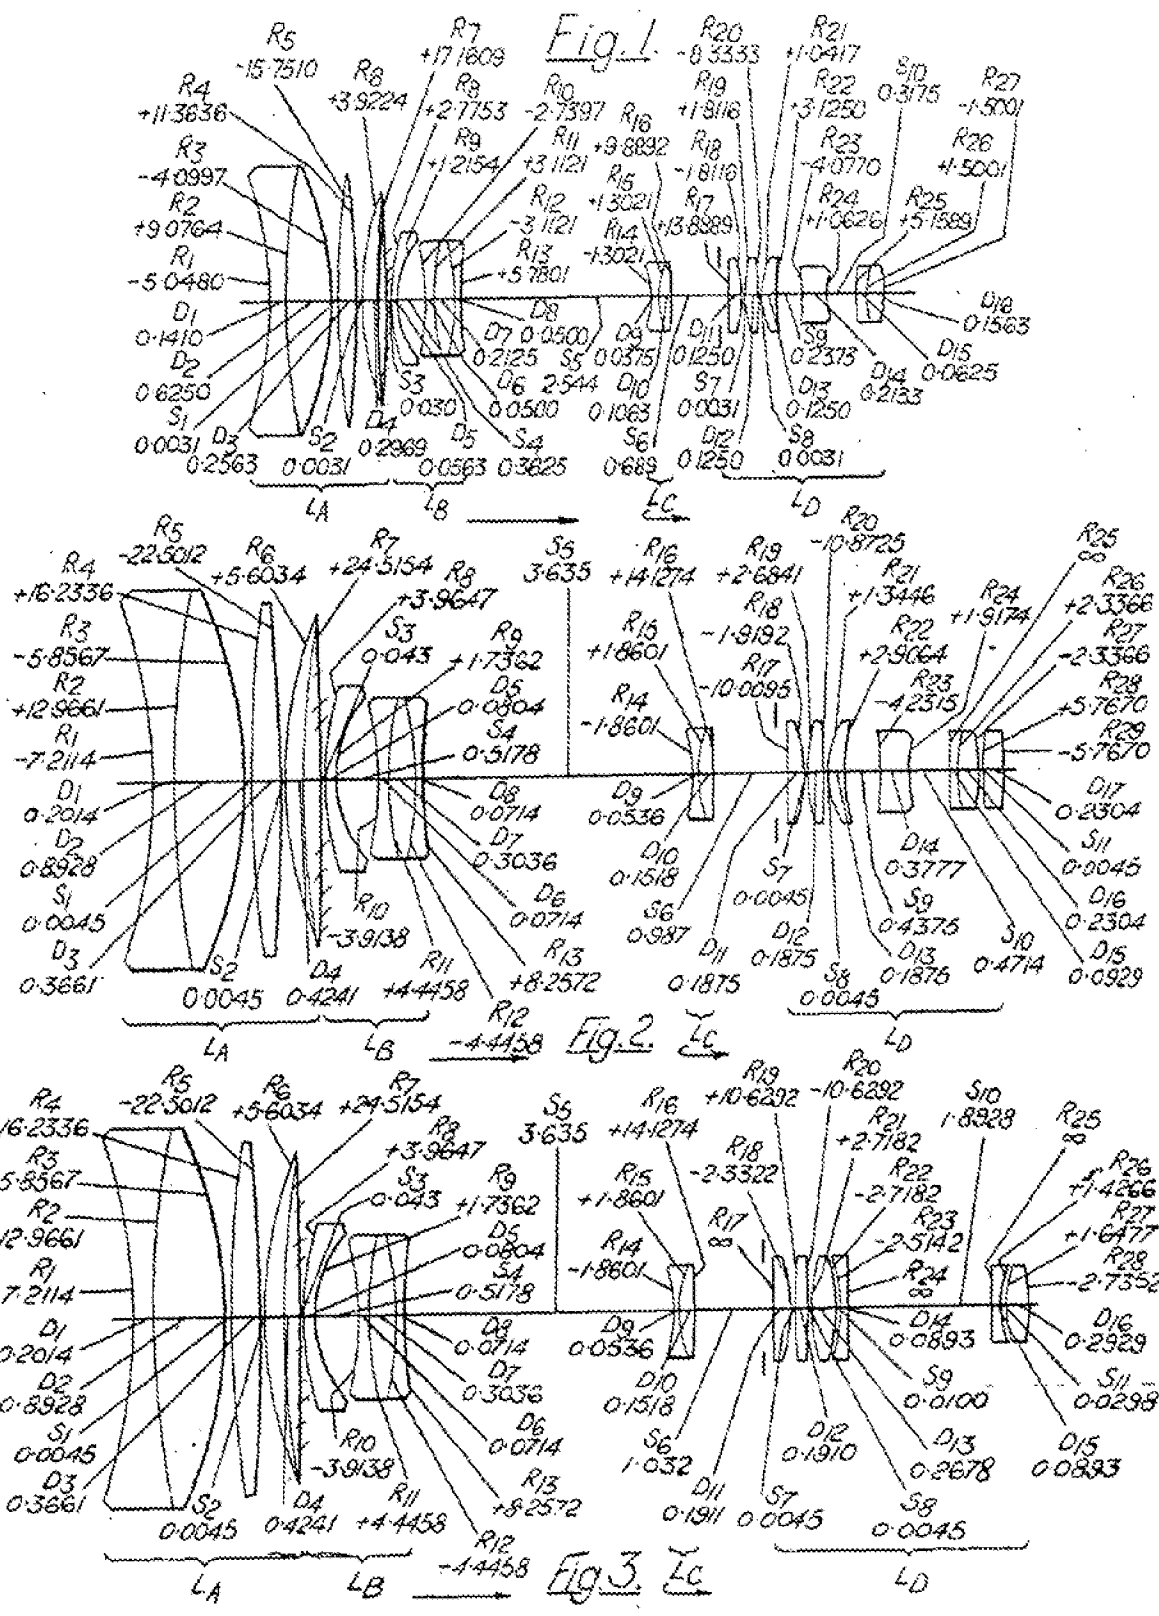 Fig.1.
R5
-15.7510
R4
+11.3636
R3
-4.0997
R2
+9.0764
R1
-5.0480
D1
0.1410
D2
0.6250
S1
0.0031
D3
0.2563
S2
0.0031
R6
+3.9224
R7
+17.1609
R8
+2.7753
R9
+1.2154
R10
-2.7397
R11
+3.1121
R12
-3.1121
R13
+5.7801
D4
0.2969
S3
0.030
D5
0.0563
S4
0.3625
D6
0.0500
D7
0.2125
D8
0.0500
S5
2.544
R14
-1.3021
R15
+1.3021
R16
+9.8892
D9
0.0375
D10
0.1063
S6
0.689
R17
+13.8889
R18
-1.8116
R19
+1.8116
R20
-8.3333
R21
+1.0417
R22
+3.1250
R23
-4.0770
R24
+1.0626
S10
0.3175
R25
+5.1589
R26
+1.5001
R27
-1.5001
D11
0.1250
S7
0.0031
D12
0.1250
S8
0.0031
D13
0.1250
S9
0.2373
D14
0.2133
D15
0.0625
D16
0.1563
LA
LB
LC
LD
R5
-22.5012
R4
+16.2336
R3
-5.8567
R2
+12.9661
R1
-7.2114
D1
0.2014
D2
0.8928
S1
0.0045
D3
0.3661
S2
0.0045
R6
+5.6034
R7
+24.5154
R8
+3.9647
S3
0.043
R9
+1.7362
D5
0.0804
S4
0.5178
D8
0.0714
D7
0.3036
D6
0.0714
R13
+8.2572
R10
-3.9138
D4
0.4241
R11
+4.4458
R12
-4.4458
S5
3.635
R16
+14.1274
R15
+1.8601
R14
-1.8601
D9
0.0536
D10
0.1518
S6
0.987
R19
+2.6841
R18
-1.9192
R17
-10.0095
R20
-10.8725
R21
+1.3446
R22
+2.9064
R23
-4.2315
R24
+1.9174
R25
∞
R26
+2.3366
R27
-2.3366
R28
+5.7670
R29
-5.7670
D17
0.2304
S11
0.0045
D16
0.2304
D15
0.0929
S10
0.4714
D14
0.3777
S9
0.4375
D13
0.1875
S8
0.0045
S7
0.0045
D12
0.1875
D11
0.1875
LA
LB
Fig.2.
LC
LD
R5
-22.5012
R4
16.2336
R3
5.8567
R2
12.9661
R1
7.2114
D1
0.2014
D2
0.8928
S1
0.0045
D3
0.3661
S2
0.0045
R6
+5.6034
R7
+24.5154
R8
+3.9647
S3
0.043
R9
+1.7362
D5
0.0804
S4
0.5178
D8
0.0714
D7
0.3036
D6
0.0714
R13
+8.2572
R10
-3.9138
D4
0.4241
R11
+4.4458
R12
-4.4458
S5
3.635
R16
+14.1274
R15
+1.8601
R14
-1.8601
D9
0.0536
D10
0.1518
S6
1.032
R19
+10.6292
R18
-2.3322
R17
∞
R20
-10.6292
R21
+2.7182
R22
-2.7182
R23
-2.5142
R24
∞
S10
1.8928
R25
∞
R26
+1.4266
R27
+1.6477
R28
-2.7352
D16
0.2929
S11
0.0298
D15
0.0893
D14
0.0893
S9
0.0100
D13
0.2678
D12
0.1910
S8
0.0045
S7
0.0045
D11
0.1911
LA
LB
Fig.3.
LC
LD